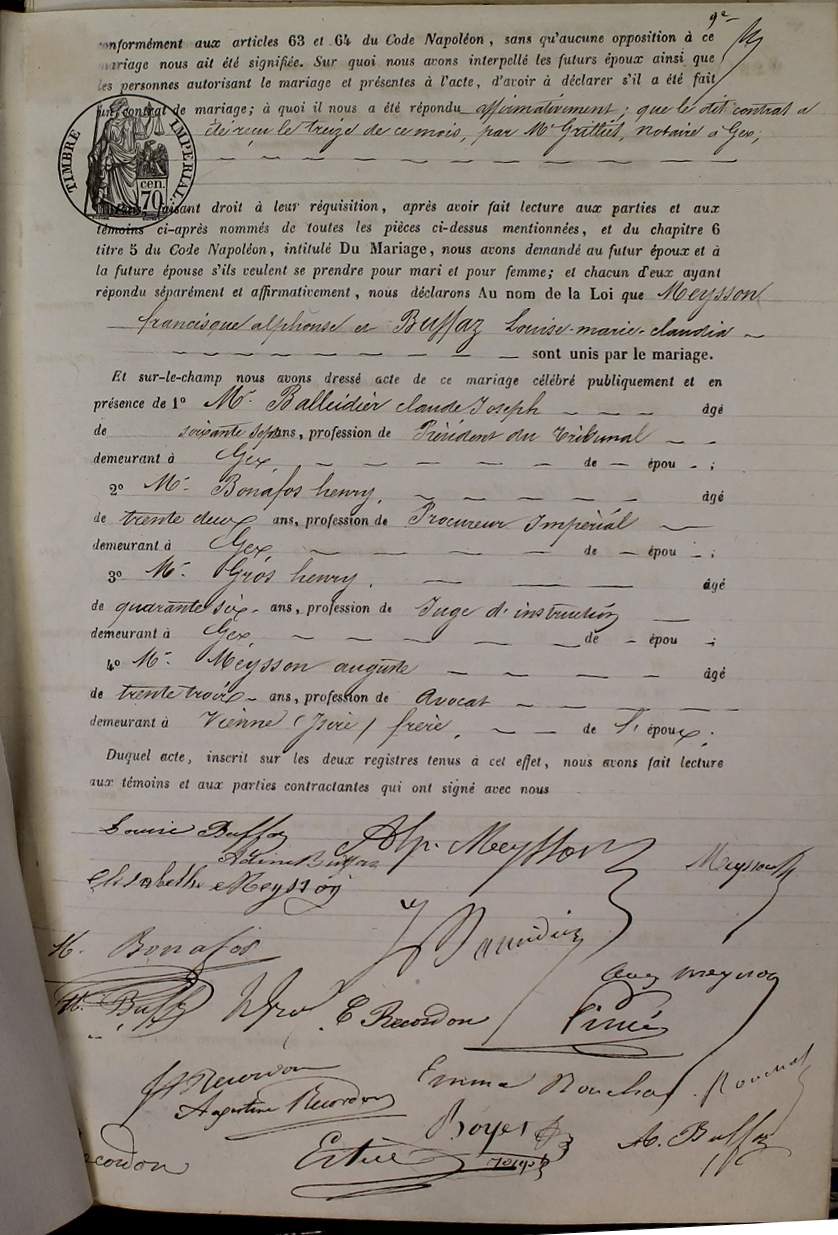 conformément aux articles 63 et 64 du Code Napoléon, sans qu'aucune opposition à ce
mariage nous ait été signifiée. Sur quoi nous avons interpellé les futurs époux ainsi que
les personnes autorisant le mariage et présentes à l'acte, d'avoir à déclarer s'il a été fait
un contrat de mariage; à quoi il nous a été répondu affirmativement; que le dit contrat a
été reçu le treize de ce mois, par Mr notaire à Gex;
TIMBRE IMPERIAL
70 cen.
faisant droit à leur réquisition, après avoir fait lecture aux parties et aux
témoins ci-après nommés de toutes les pièces ci-dessus mentionnées, et du chapitre 6
titre 5 du Code Napoléon, intitulé Du Mariage, nous avons demandé au futur époux et à
la future épouse s'ils veulent se prendre pour mari et pour femme; et chacun d'eux ayant
répondu séparément et affirmativement, nous déclarons Au nom de la Loi que Meysson
francisque alphonse et Buffaz Louise-marie-claudia
sont unis par le mariage.
Et sur-le-champ nous avons dressé acte de ce mariage célébré publiquement et en
présence de 1o Mr. Balleidier claude Joseph âgé
de soixante sept ans, profession de Président du Tribunal
demeurant à Gex de épou ;
2o Mr. Bonafos henry. âgé
de trente deux ans, profession de Procureur Impérial
demeurant à Gex de épou ;
3o Mr. Gros henry. âgé
de quarante six ans, profession de Juge d'instruction
demeurant à Gex de épou ;
4o Mr. Meysson auguste âgé
de trente trois ans, profession de avocat
demeurant à Vienne (Isère) frère. de l'époux;
Duquel acte, inscrit sur les deux registres tenus à cet effet, nous avons fait lecture
aux témoins et aux parties contractantes qui ont signé avec nous
Louise Buffaz Alp. Meysson Meysson
Elisabeth Meysson
H. Bonafos
Aug Meysson
H. Buffaz Gros E Recordon
Recordon Emma Rouchat Rouchat
Augustine Recordon
Boyer A. Buffaz
Recordon